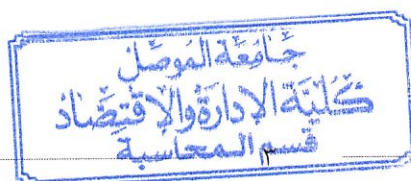 جامعة الموصل
كلية الإدارة والاقتصاد
قسم المحاسبة
٣